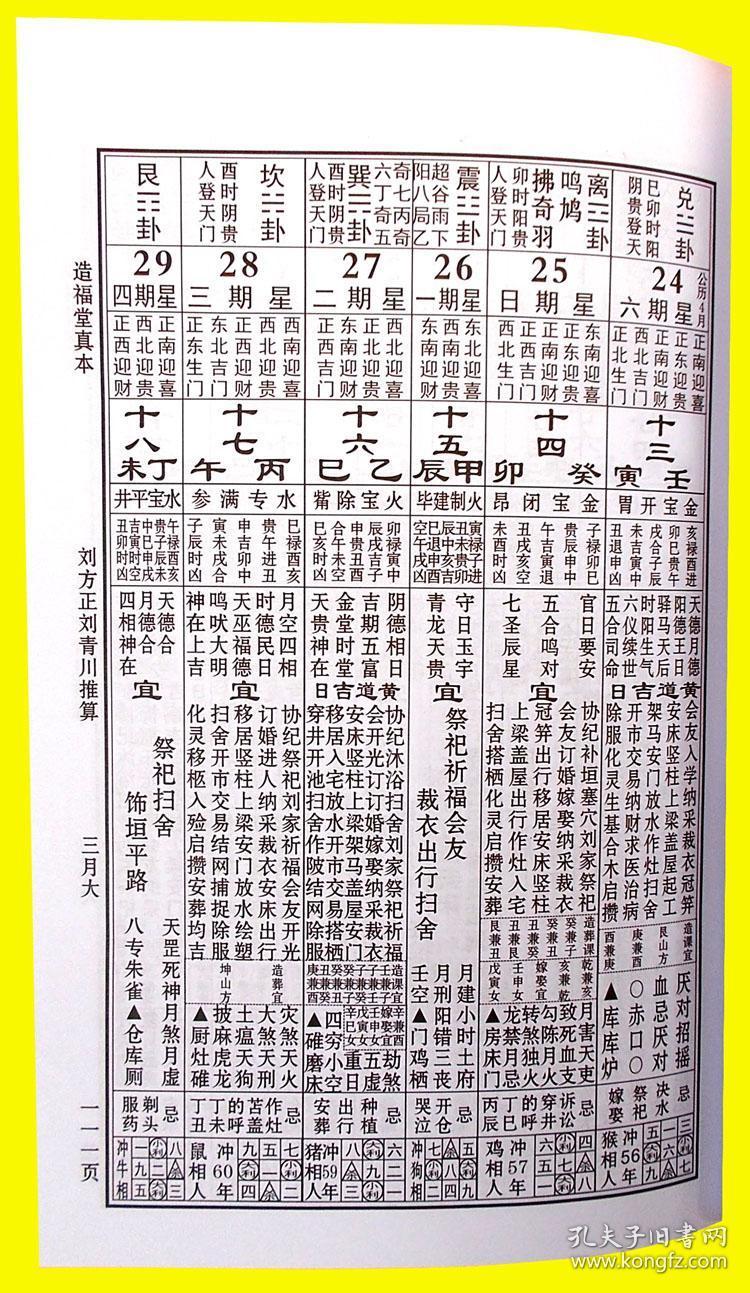 公历4月
兑☱卦
巳卯时阳
阴贵登天
24
星期六
正南迎喜
正东迎贵
正南迎财
西北吉门
正北生门
十三
壬寅
金宝开胃
亥禄酉进
卯巳贵午
戌合子辰
未吉寅中
丑退申凶
天德月德
阳德王日
驿马天后
时阳生气
六仪续世
五合司命
黄道吉日
会友入学纳采裁衣冠笄
安床竖柱上梁盖屋起工
架马安门放水作灶扫舍
开市交易纳财求医治病
除服化灵生基合木启攒
造课宜
艮山方
庚兼酉
酉兼庚
厌对招摇
血忌厌对
〇赤口〇
▲库库炉
忌
决水
祭祀
嫁娶
冲56年
猴相人
离☲卦
鸣鸠
拂奇羽
卯时阳贵
人登天门
25
星期日
东南迎喜
正东迎贵
正南迎财
西南吉门
正东生门
十四
癸卯
金宝闭昂
子禄卯巳
贵辰申中
午吉寅退
丑戌亥空
未酉时凶
官日要安
五合鸣对
七圣辰星
宜
协纪补垣塞穴刘家祭祀
会友订婚嫁娶纳采裁衣
冠笄出行移居安床竖柱
上梁盖屋出行作灶入宅
扫舍搭栖化灵启攒安葬
月害天吏
致死血支
勾陈月火
转煞独火
龙禁月忌
▲房床门
忌
诉讼
穿井
的呼
丁巳
丙辰
冲57年
鸡相人
震☳卦
超谷雨下
阳八局乙
26
星期一
东北迎喜
西南迎贵
正东迎财
西北吉门
正南生门
十五
甲辰
火制建毕
寅禄子进
丑未贵卯
辰中亥吉
巳退申酉
空午戌凶
守日玉宇
青龙天贵
宜
祭祀祈福会友
裁衣出行扫舍
月建小时土府
月刑阳错三丧
壬空▲门鸡栖
忌
开仓
哭泣
冲狗相
奇七丙奇
六丁奇五
巽☴卦
酉时阴贵
人登天门
27
星期二
西北迎喜
西南迎贵
正东迎财
正西吉门
东南生门
十六
乙巳
火宝除觜
卯禄寅中
辰戌吉子
申贵丑凶
合午未空
巳亥时凶
阴德相日
吉期五富
金堂时堂
天贵神在
黄道吉日
协纪沐浴扫舍刘家祭祀祈福
会开光订订婚嫁娶纳采裁衣
安床竖柱上梁架马盖屋安门
移居入宅放水作陂结网除服
穿井开池扫舍开市交易搭栖
劫煞
五虚
重日
四穷小空
▲碓磨床
忌
种植
出行
安葬
冲59年
猪相人
坎☵卦
酉时阴贵
人登天门
28
星期三
西南迎喜
西北迎贵
正西迎财
正北吉门
东南生门
十七
丙午
水专满参
巳禄酉亥
贵午进丑
申吉卯中
寅未戌合
子辰时凶
月空四相
时德民日
天巫福德
鸣吠大明
神在上吉
宜
协纪祭祀刘家祈福会友开光
订婚进人纳采裁衣安床出行
移居竖柱上梁安门放水绘塑
扫舍开市交易结网捕捉除服
化灵移柩入殓启攒安葬均吉
造葬宜
坤山方
灾煞天火
大煞天刑
土瘟天狗
披麻虎龙
▲厨灶碓
忌
作灶
苫盖
的呼
丁未
丁丑
冲60年
鼠相人
艮☶卦
29
星期四
正南迎喜
西北迎贵
正西迎财
正北生门
十八
丁未
水宝平井
午禄酉亥
贵子辰未
中巳申戌
吉寅时空
丑卯时凶
天德合
月德合
四相神在
宜
祭祀扫舍
饰垣平路
天罡死神月煞月虚
八专朱雀▲仓库厕
忌
剃头
服药
冲牛相
造福堂真本
刘方正刘青川推算
三月大
一一一页
孔夫子旧书网
www.kongfz.com